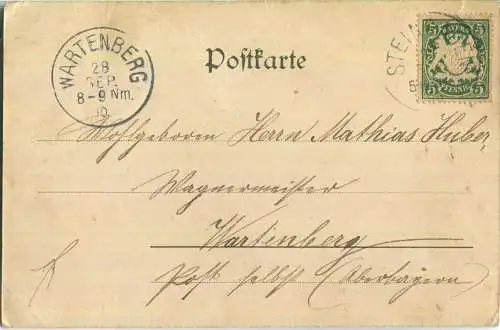 Postkarte
WARTENBERG
28
SEP.
8-9 Nm.
STEI
5 BAYERN 5
5 PFENNIG 5
Wohlgeboren Herrn Mathias Huber
Wagnermeister
Wartenberg
Post selbst (Oberbayern)